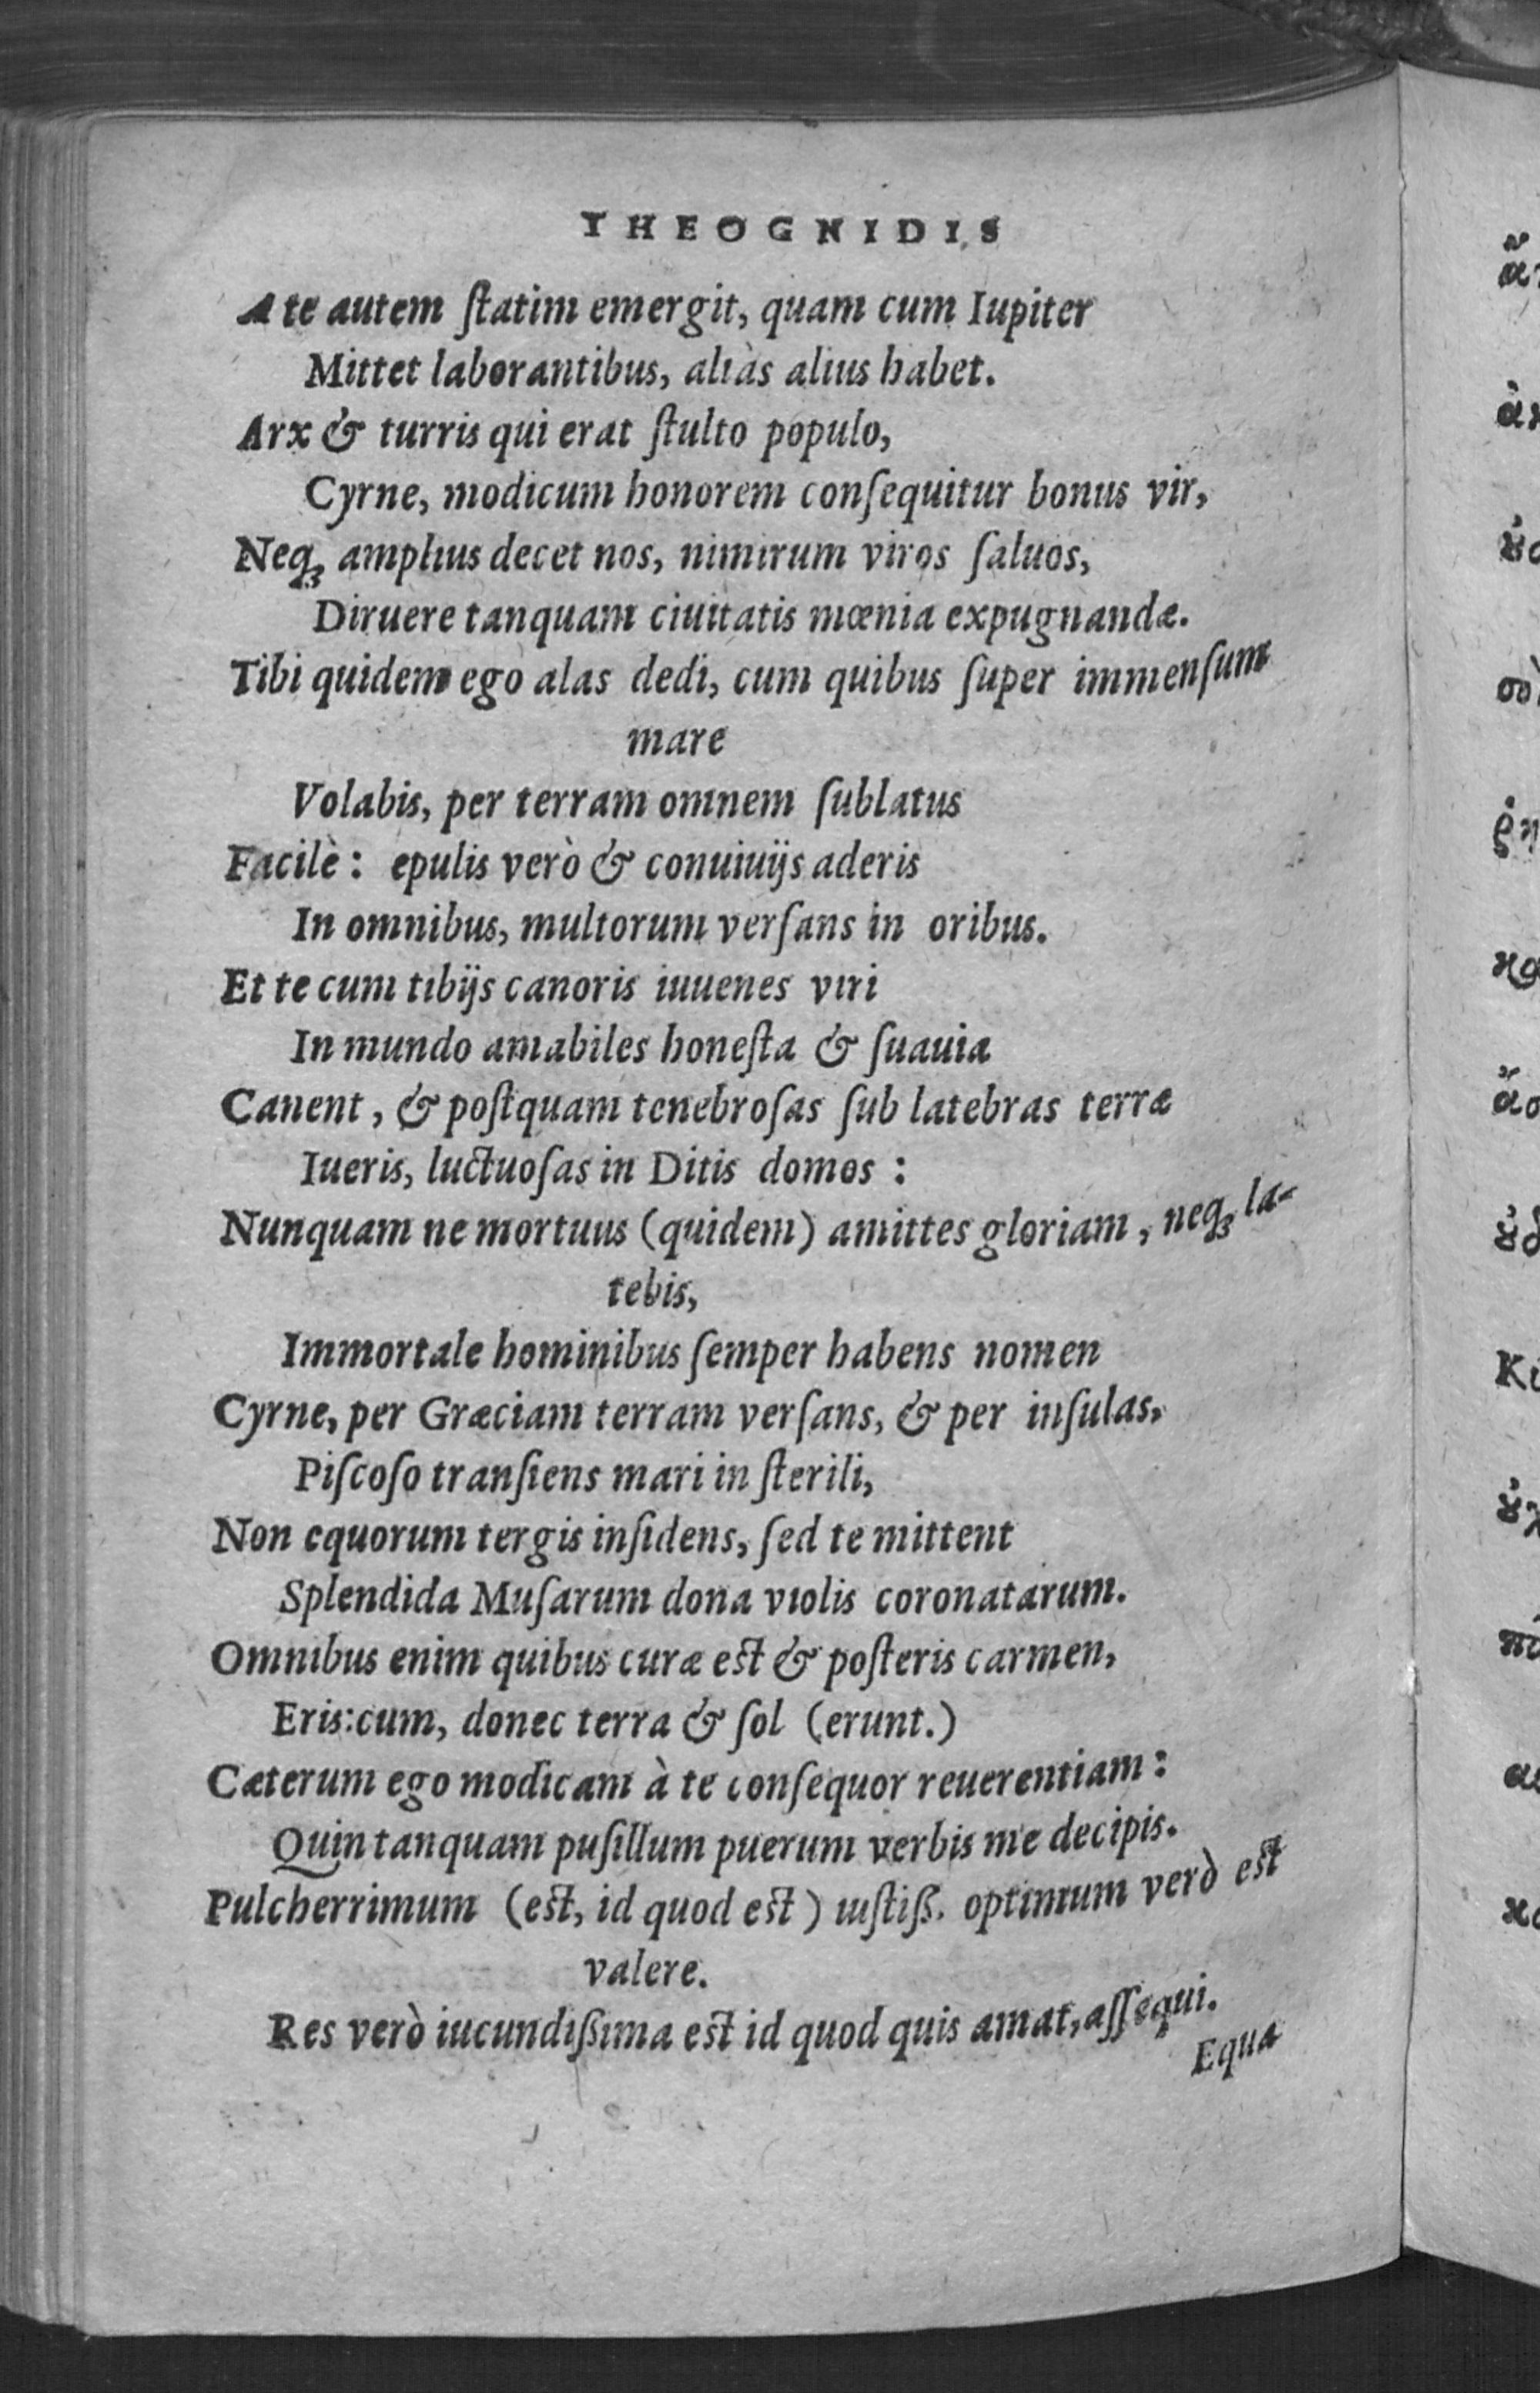 THEOGNIDIS
A te autem ſtatim emergit, quam cum Iupiter
Mittet laborantibus, aliàs alius habet.
Arx & turris qui erat ſtulto populo,
Cyrne, modicum honorem conſequitur bonus vir,
Neqꝫ amplius decet nos, nimirum viros ſaluos,
Diruere tanquam ciuitatis mœnia expugnandæ.
Tibi quidem ego alas dedi, cum quibus ſuper immenſum
mare
Volabis, per terram omnem ſublatus
Facilè: epulis verò & conuiuijs aderis
In omnibus, multorum verſans in oribus.
Et te cum tibijs canoris iuuenes viri
In mundo amabiles honeſta & ſuauia
Canent, & poſtquam tenebroſas ſub latebras terræ
Iueris, luctuoſas in Ditis domos:
Nunquam ne mortuus (quidem) amittes gloriam, neqꝫ la-
tebis,
Immortale hominibus ſemper habens nomen
Cyrne, per Græciam terram verſans, & per inſulas,
Piſcoſo tranſiens mari in ſterili,
Non equorum tergis inſidens, ſed te mittent
Splendida Muſarum dona violis coronatarum.
Omnibus enim quibus curæ eſt & poſteris carmen,
Eris:cum, donec terra & ſol (erunt.)
Cæterum ego modicam à te conſequor reuerentiam:
Quin tanquam puſillum puerum verbis me decipis.
Pulcherrimum (eſt, id quod eſt) iuſtiß. optimum verò eſt
valere.
Res verò iucundißima eſt id quod quis amat, aſſequi.
Equa